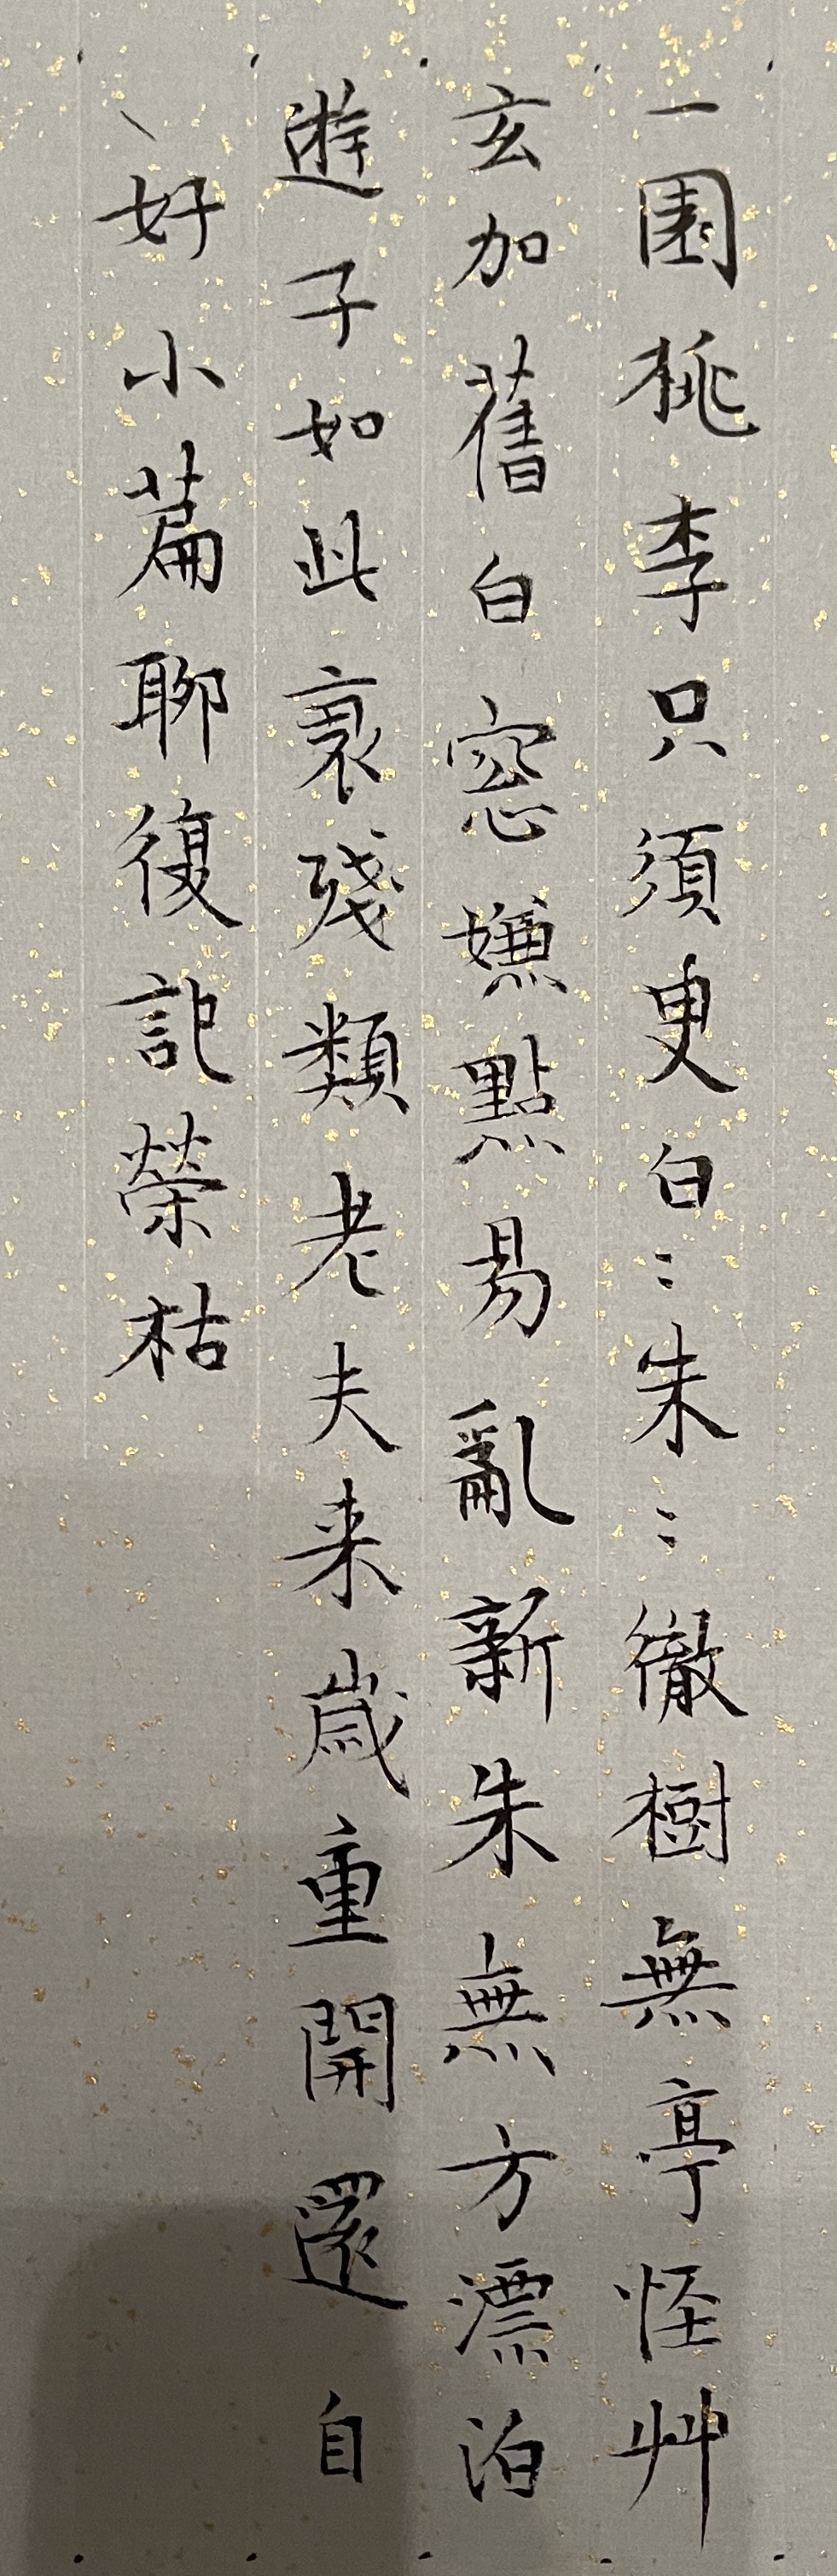 一園桃李只須臾白〻朱〻徹樹無亭怪艸
玄加舊白窓嫌點易亂新朱無方漂泊
遊子如此衰殘類老夫来歳重開還自
丶好小萹聊復記榮枯